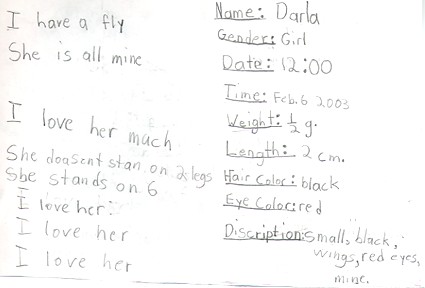 I have a fly
She is all mine
I love her much
She doasent stan on 2 legs
She stands on 6
I love her:
I love her
I love her
Name: Darla
Gender: Girl
Date: 12:00
Time: Feb. 6 2003
Weight: 1/2 g.
Length: 2 cm.
Hair Color: black
Eye Color: red
Discription: small, black,
wings, red eyes,
mine.